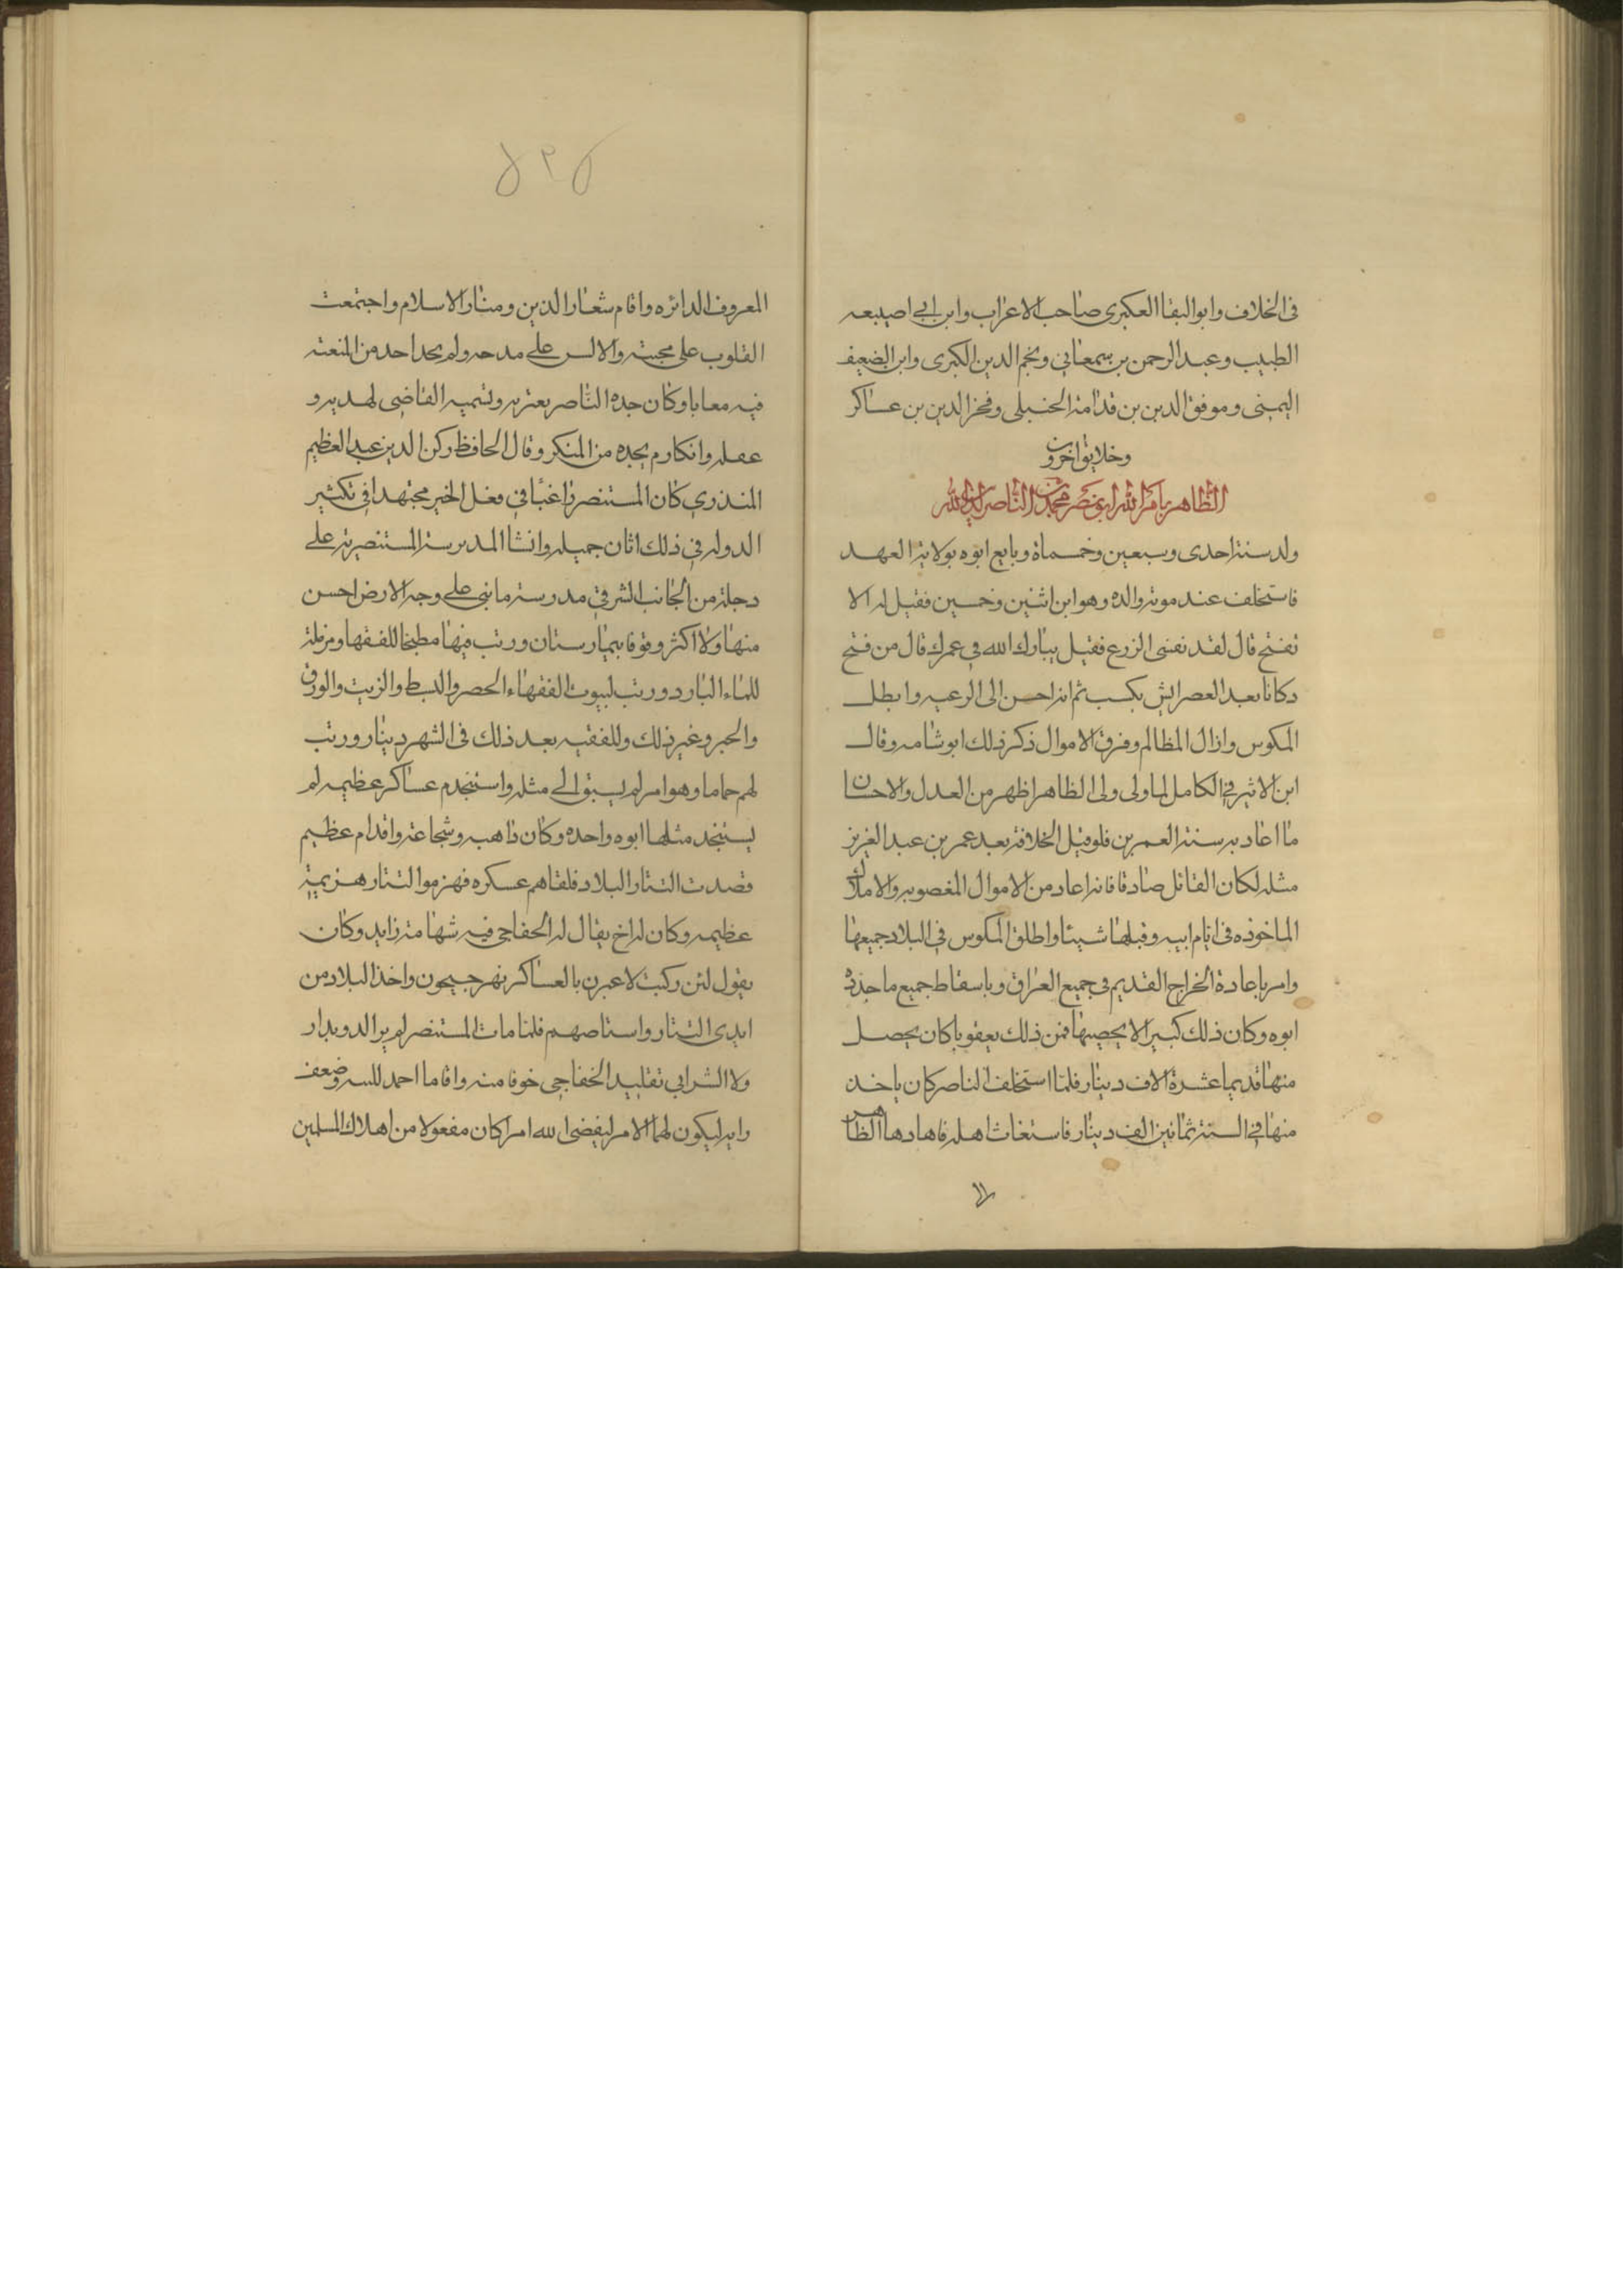 فى الخلاف وابو البقا العكبرى صاحب الاعراب وابن ابى اصيبعه
الطبيب وعبد الرحمن بن سمعانى ونجم الدين الكبرى وابن الضعيف
اليمنى وموفق الدين بن قدامة الحنبلى وفخر الدين بن عساكر
وخلايق اخرون
الظاهر بامر الله ابو نصر محمد بن الناصر لدين الله
ولد سنة احدى وسبعين وخمسماة وبايع ابوه بولاية العهد
فاستخلف عند موته والده وهو ابن اثنين وخمسين فقيل له الا
تفتح قال لقد نفسى الزرع فقيل يبارك الله فى عمرك قال من فتح
دكانا بعد العصر ايش يكسب ثم انه احسن الى الرعيه وابطل
المكوس وازال المظالم وفرق الاموال ذكر ذلك ابو شامه وقال
ابن الاثير فى الكامل لما ولى ولى الظاهر اظهر من العدل والاحسان
ما اعاد به سنة العمرين فلو قيل الخلافة بعد عمر بن عبد العزيز
مثله لكان القائل صادقا فانه اعاد من الاموال المغصوبه والاملاك
الماخوذه فى ايام ابيه وقبلها شيئا واطلق المكوس فى البلاد جميعها
وامر باعادة الخراج القديم فى جميع العراق وباسقاط جميع ما جدده
ابوه وكان ذلك كبيرا لا يحصيها فمن ذلك بعقوبا كان يحصل
منها قديما عشرة الاف دينار فلما استخلف الناصر كان ياخد
منها فى السنة ثمانين الف دينار فاستغاث اهله فاهادها الظاهر
٥٢٥
المعروف الدائره واقام شعار الدين ومنار الاسلام واجتمعت
القلوب على محبته والالس على مدحه ولم يجد احد من المنعته
فيه معابا وكان جده الناصر يعتر به وتسميه القاضى لهديه و
عقله وانكاره م يجده من المنكر وقال الحافظ ركن الدين عبد العظيم
المنذري كان المستنصر راغبا فى فعل الخير مجتهدا فى تكثير
الدوله فى ذلك اثان جميله وانشا المدرسة المستنصرية على
دجلة من الجانب الشرقى مدرسة ما بنى على وجه الارض احسن
منها ولا اكثر وقوفا بيمارستان ورتب فيها مطبخا للفقها ومزملة
للماء البارد ورتب لبيوت الفقهاء الحصر والبسط والزيت والورق
والحبر وغير ذلك وللفقيه بعد ذلك فى الشهر دينار ورتب
لهم حماما وهو امر لم يسبق الى مثله واستخدم عساكر عظيمه لم
يستنجد مثلها ابوه واحده وكان ذا هبه وشجاعة واقدام عظيم
قصدت التتار البلاد فلقاهم عسكره فهزموا التتار هزيمة
عظيمه وكان له اخ يقال له الخفاجى فيه شهامة زايد وكان
يقول لئن وكيت لاعبرن بالعساكر نهر جيحون واخذ البلاد من
ايدى التتار واستاصهم فلما مات المستنصر لم ير الدويدار
ولا الشرابى تقليد الخفاجى خوفا منه واقاما احمد للسه وضعف
رايه ليكون لهما الامر ليقضى الله امرا كان مفعولا من اهلاك المسلمين